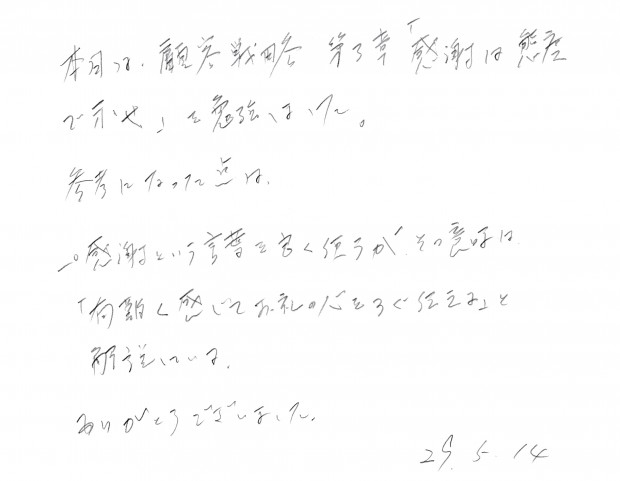 本日は、顧客戦略 第3章「感謝は態度
で示せ」を勉強しました。
参考になった点は、
感謝という言葉を良く使うが、その意味は
「有難く感じてお礼の心をすぐ伝える」と
解説している。
ありがとうございました。
29.5.14